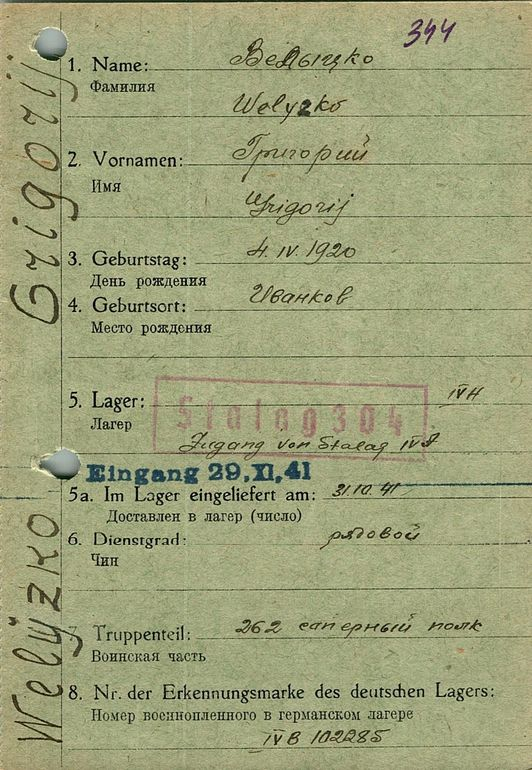 344
1. Name: Велыцко
Фамилия
Welyzko
2. Vornamen: Григорий
Имя
Grigorij
3. Geburtstag: 4. IV. 1920
День рождения
4. Geburtsort: Иванков
Место рождения
5. Lager: IV H
Лагер
Stalag 304
Zugang von Stalag IV B
Eingang 29. XI. 41
5a. Im Lager eingeliefert am: 31.10.41
Доставлен в лагер (число)
6. Dienstgrad: рядовой
Чин
7. Truppenteil: 262 саперный полк
Воинская часть
8. Nr. der Erkennungsmarke des deutschen Lagers:
Номер военнопленного в германском лагере
IV B 102285
Welyzko Grigorij